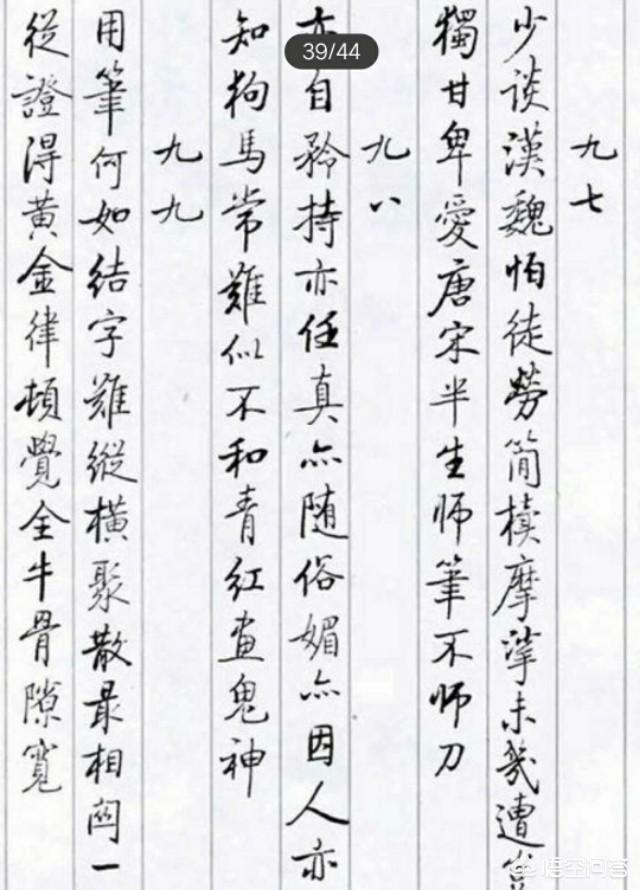 39/44
九七
少谈漢魏怕徒勞簡牘摩挲未幾遭豈
獨甘卑愛唐宋半生师筆不师刀
九八
亦自矜持亦任真亦随俗媚亦因人亦
知狗馬常難似不和青紅畫鬼神
九九
用筆何如結字難縱橫聚散最相関一
從證得黃金律頓覺全牛骨隙寬
悟空问答